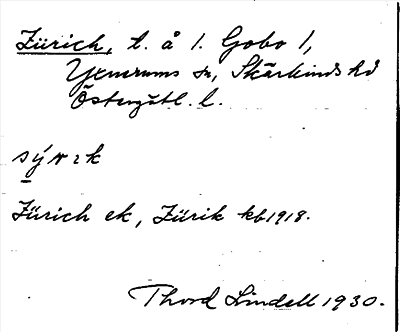 Zürich, t. å 1. Gobo 1,
Yxnerums sn, Skärkinds hd
Östergötl. l.
Zürich ek, Zürik kb 1918.
Thord Lindell 1930.